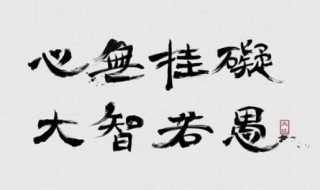 心無挂礙
大智若愚